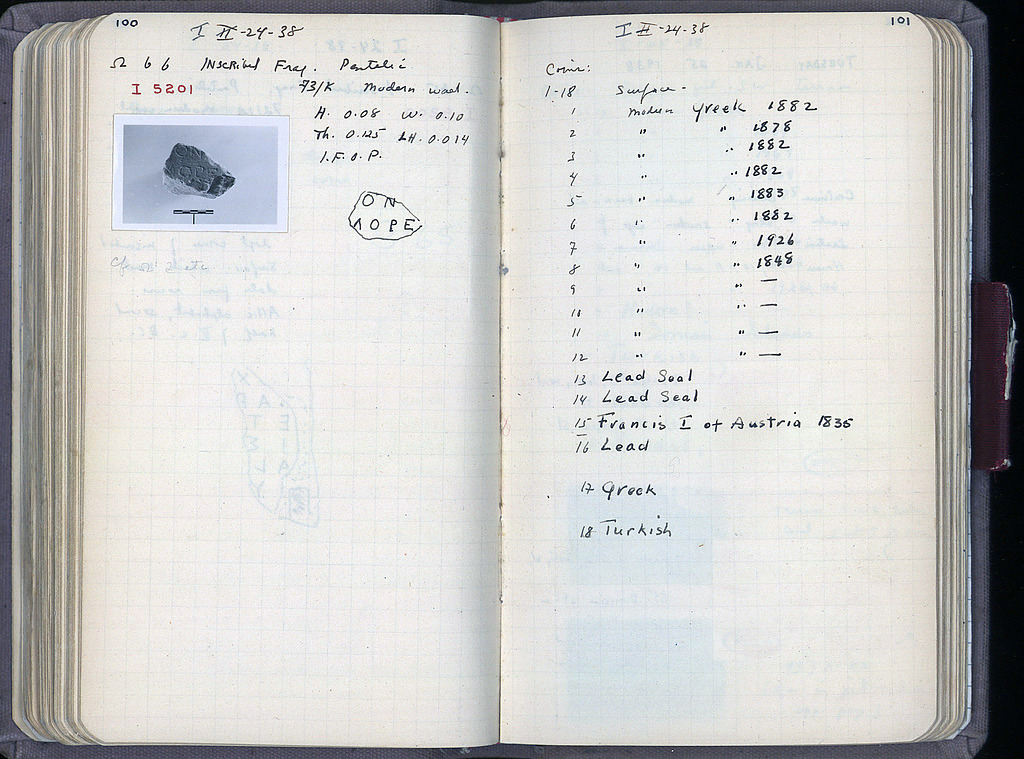 100
I II-24-38
Ω 66 Inscribed Frag. Pentelic
I 5201
73/K Modern wall.
H. 0.08 W. 0.10
Th. 0.125 LH. 0.014
I.F.O.P.
ON
ΛOPE
101
I II-24-38
Coins:
1-18 Surface-
1 modern Greek 1882
2 " " 1878
3 " " 1882
4 " " 1882
5 " " 1883
6 " " 1882
7 " " 1926
8 " " 1848
9 " " —
10 " " —
11 " " —
12 " " —
13 Lead Seal
14 Lead Seal
15 Francis I of Austria 1835
16 Lead
17 Greek
18 Turkish